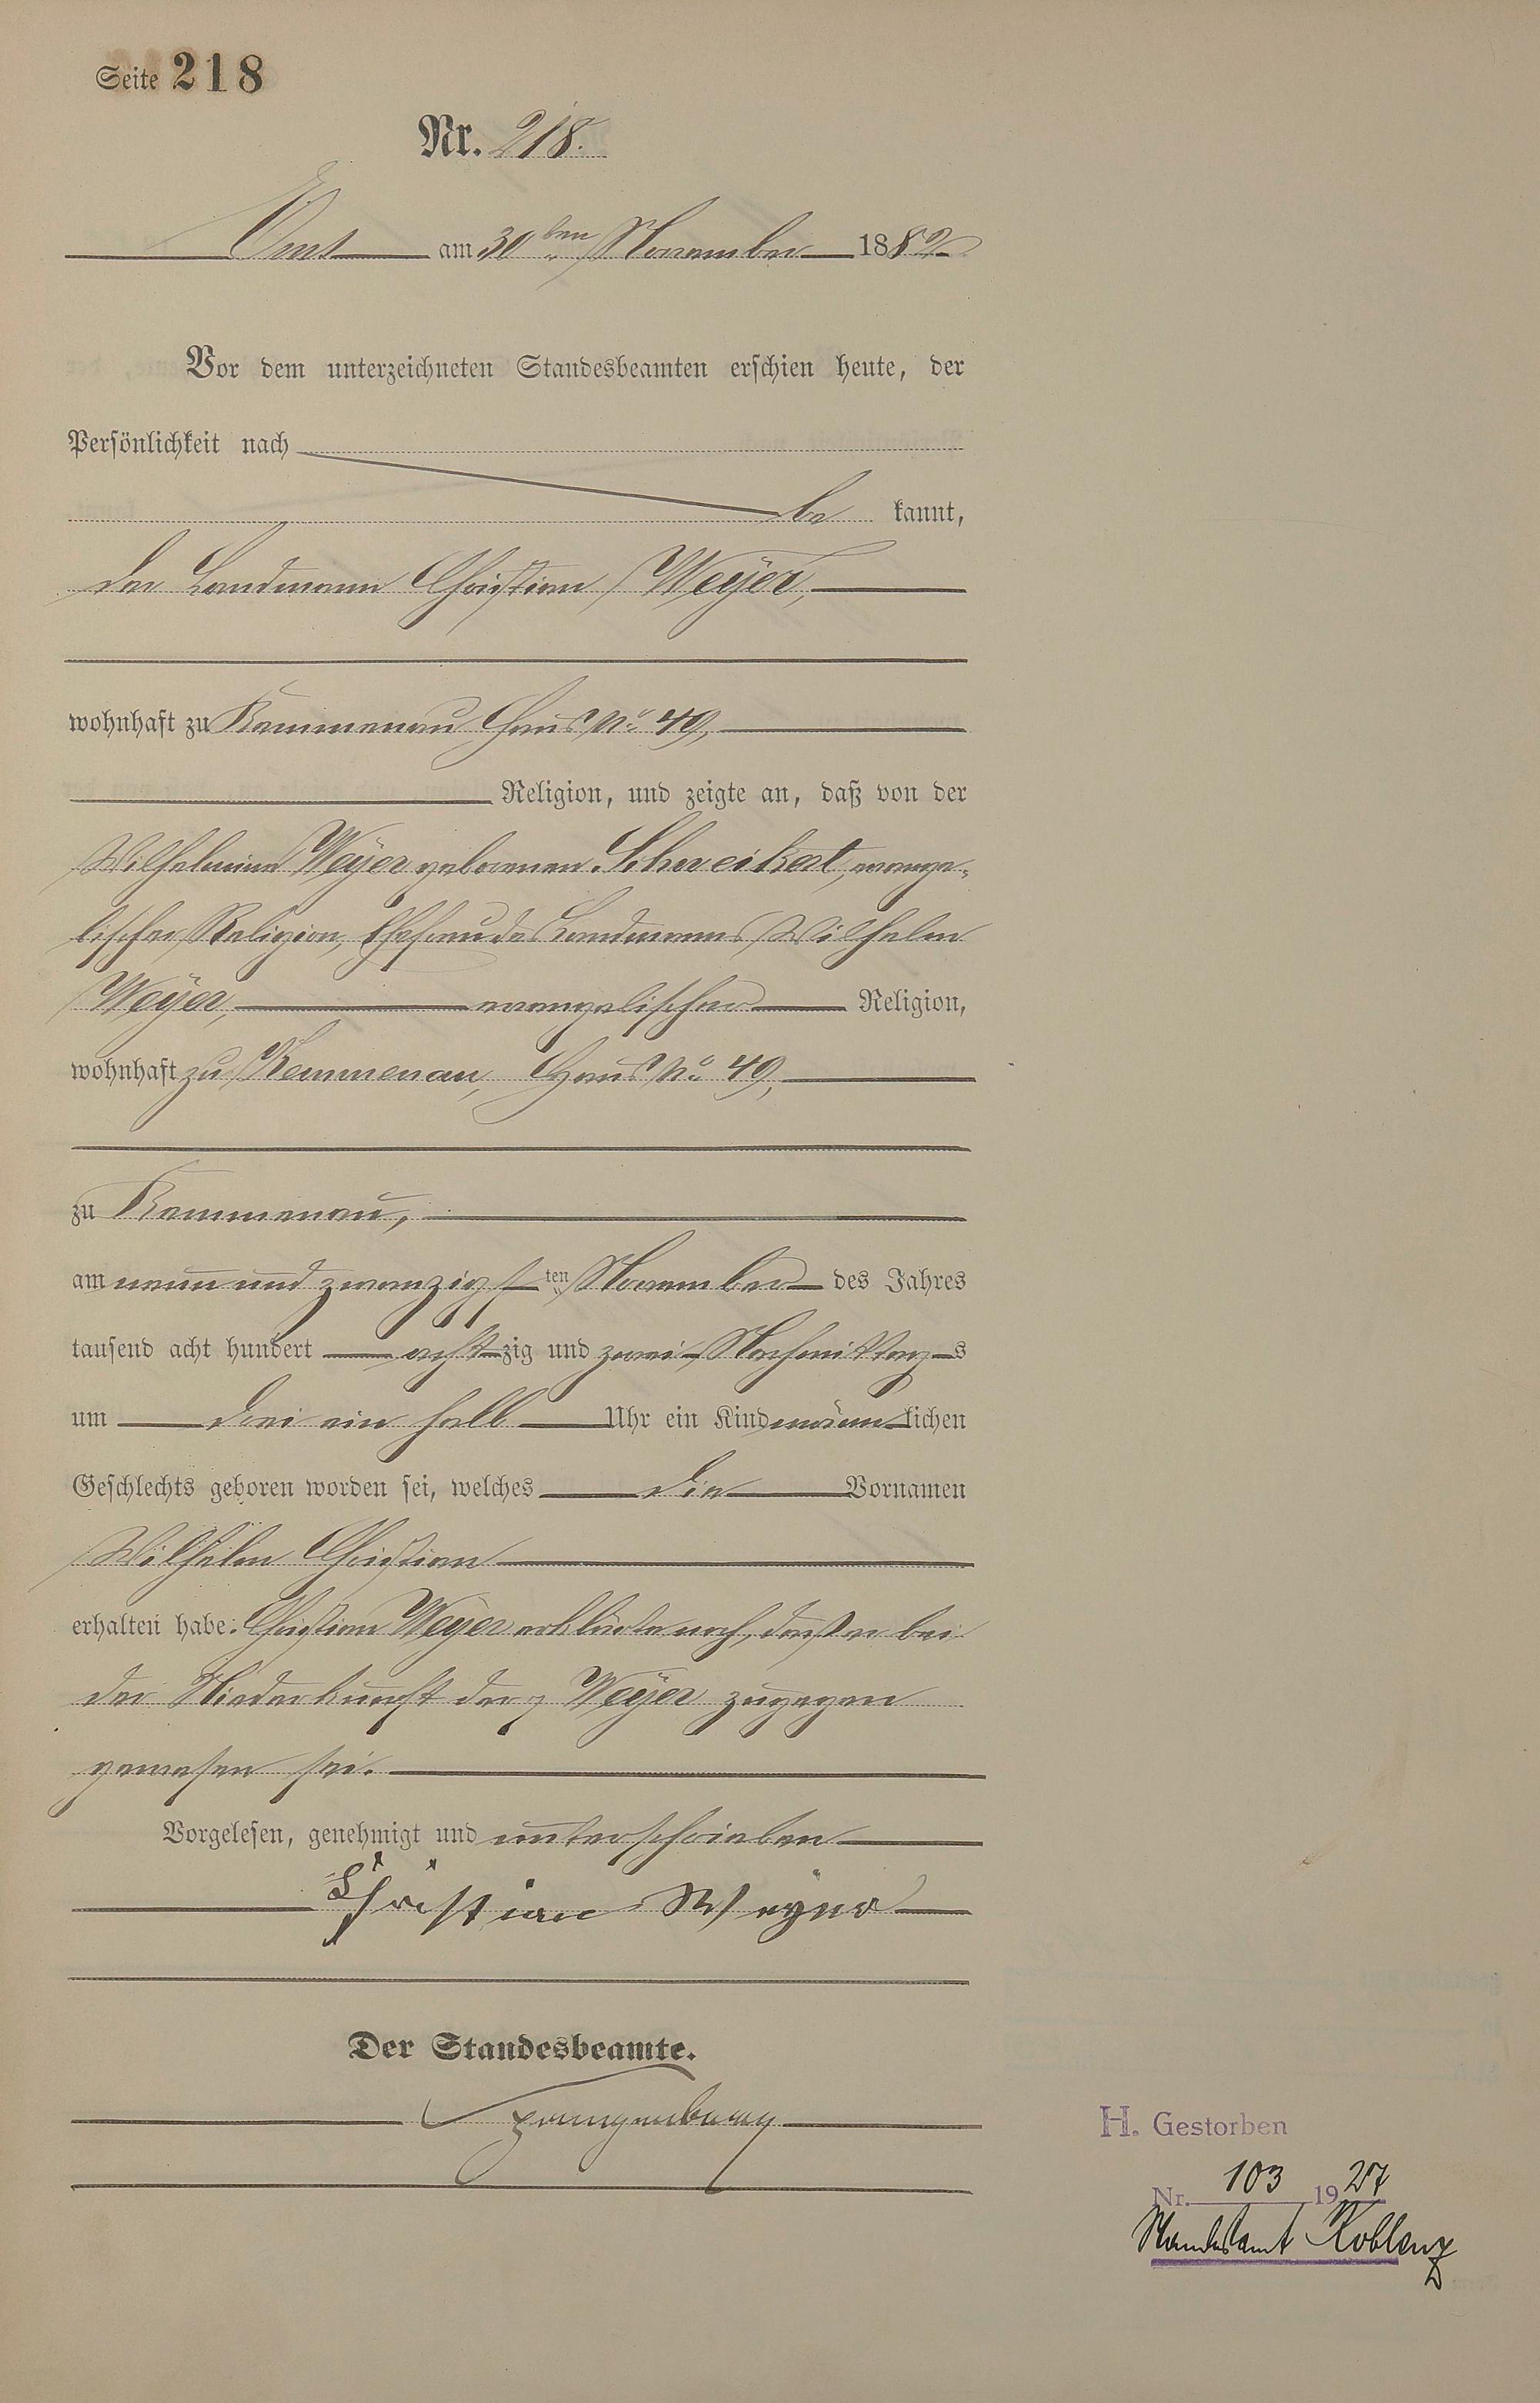 Seite 218
Nr. 218.
Ems am 30ten November 1882
Vor dem unterzeichneten Standesbeamten erschien heute, der
Persönlichkeit nach
be kannt,
der Landmann Christian Weÿer,
wohnhaft zu Kemmenau Haus No 49,
Religion, und zeigte an, daß von der
Wilhelmine Weÿer geborenen Schweikert, evange-
lischer Religion, Ehefrau des Landmanns Wilhelm
Weÿer, evangelischer Religion,
wohnhaft zu Kemmenau, Haus No 49,
zu Kemmenau,
am neun und zwanzigsten November des Jahres
tausend acht hundert achtzig und zwei Nachmittags
um drei ein halb Uhr ein Kind männlichen
Geschlechts geboren worden sei, welches die Vornamen
Wilhelm Christian
erhalten habe. Christian Weyer erklärte noch, daß er bei
der Niederkunft der Weÿer zugegen
gewesen sei.
Vorgelesen, genehmigt und unterschrieben
Christian Weyer
Der Standesbeamte.
Spangenberg
H. Gestorben
Nr. 103 1927
Standesamt Koblenz